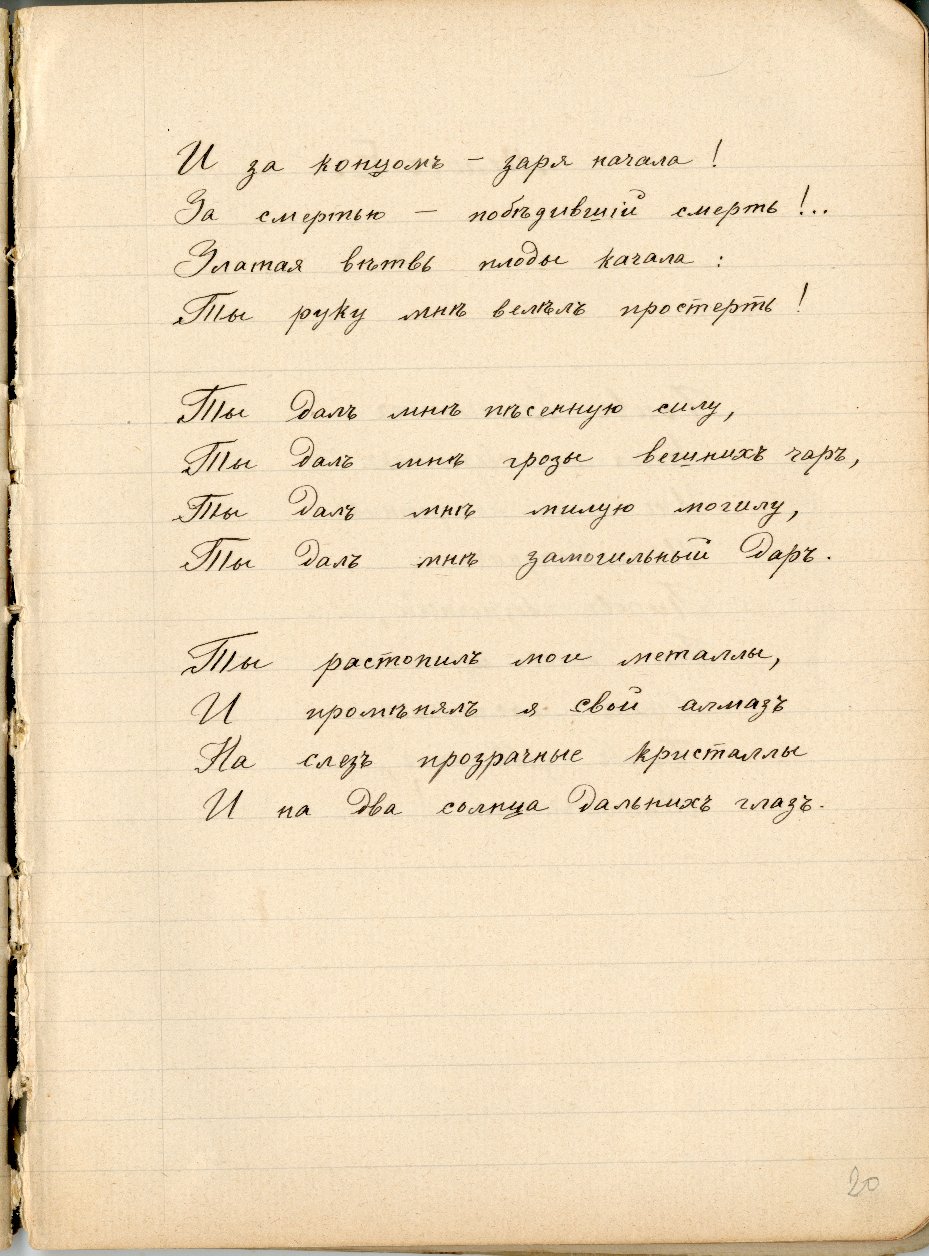 И за концомъ – заря начала!
За смертью – побѣдившій смерть!..
Златая вѣтвь плоды качала:
Ты руку мнѣ велѣлъ простерть!
Ты далъ мнѣ пѣсенную силу,
Ты далъ мнѣ грозы вешнихъ чаръ,
Ты далъ мнѣ милую могилу,
Ты далъ мнѣ замогильный даръ.
Ты растопилъ мои металлы,
И промѣнялъ я свой алмазъ
На слезъ прозрачные кристаллы
И на два солнца дальнихъ глазъ.
20